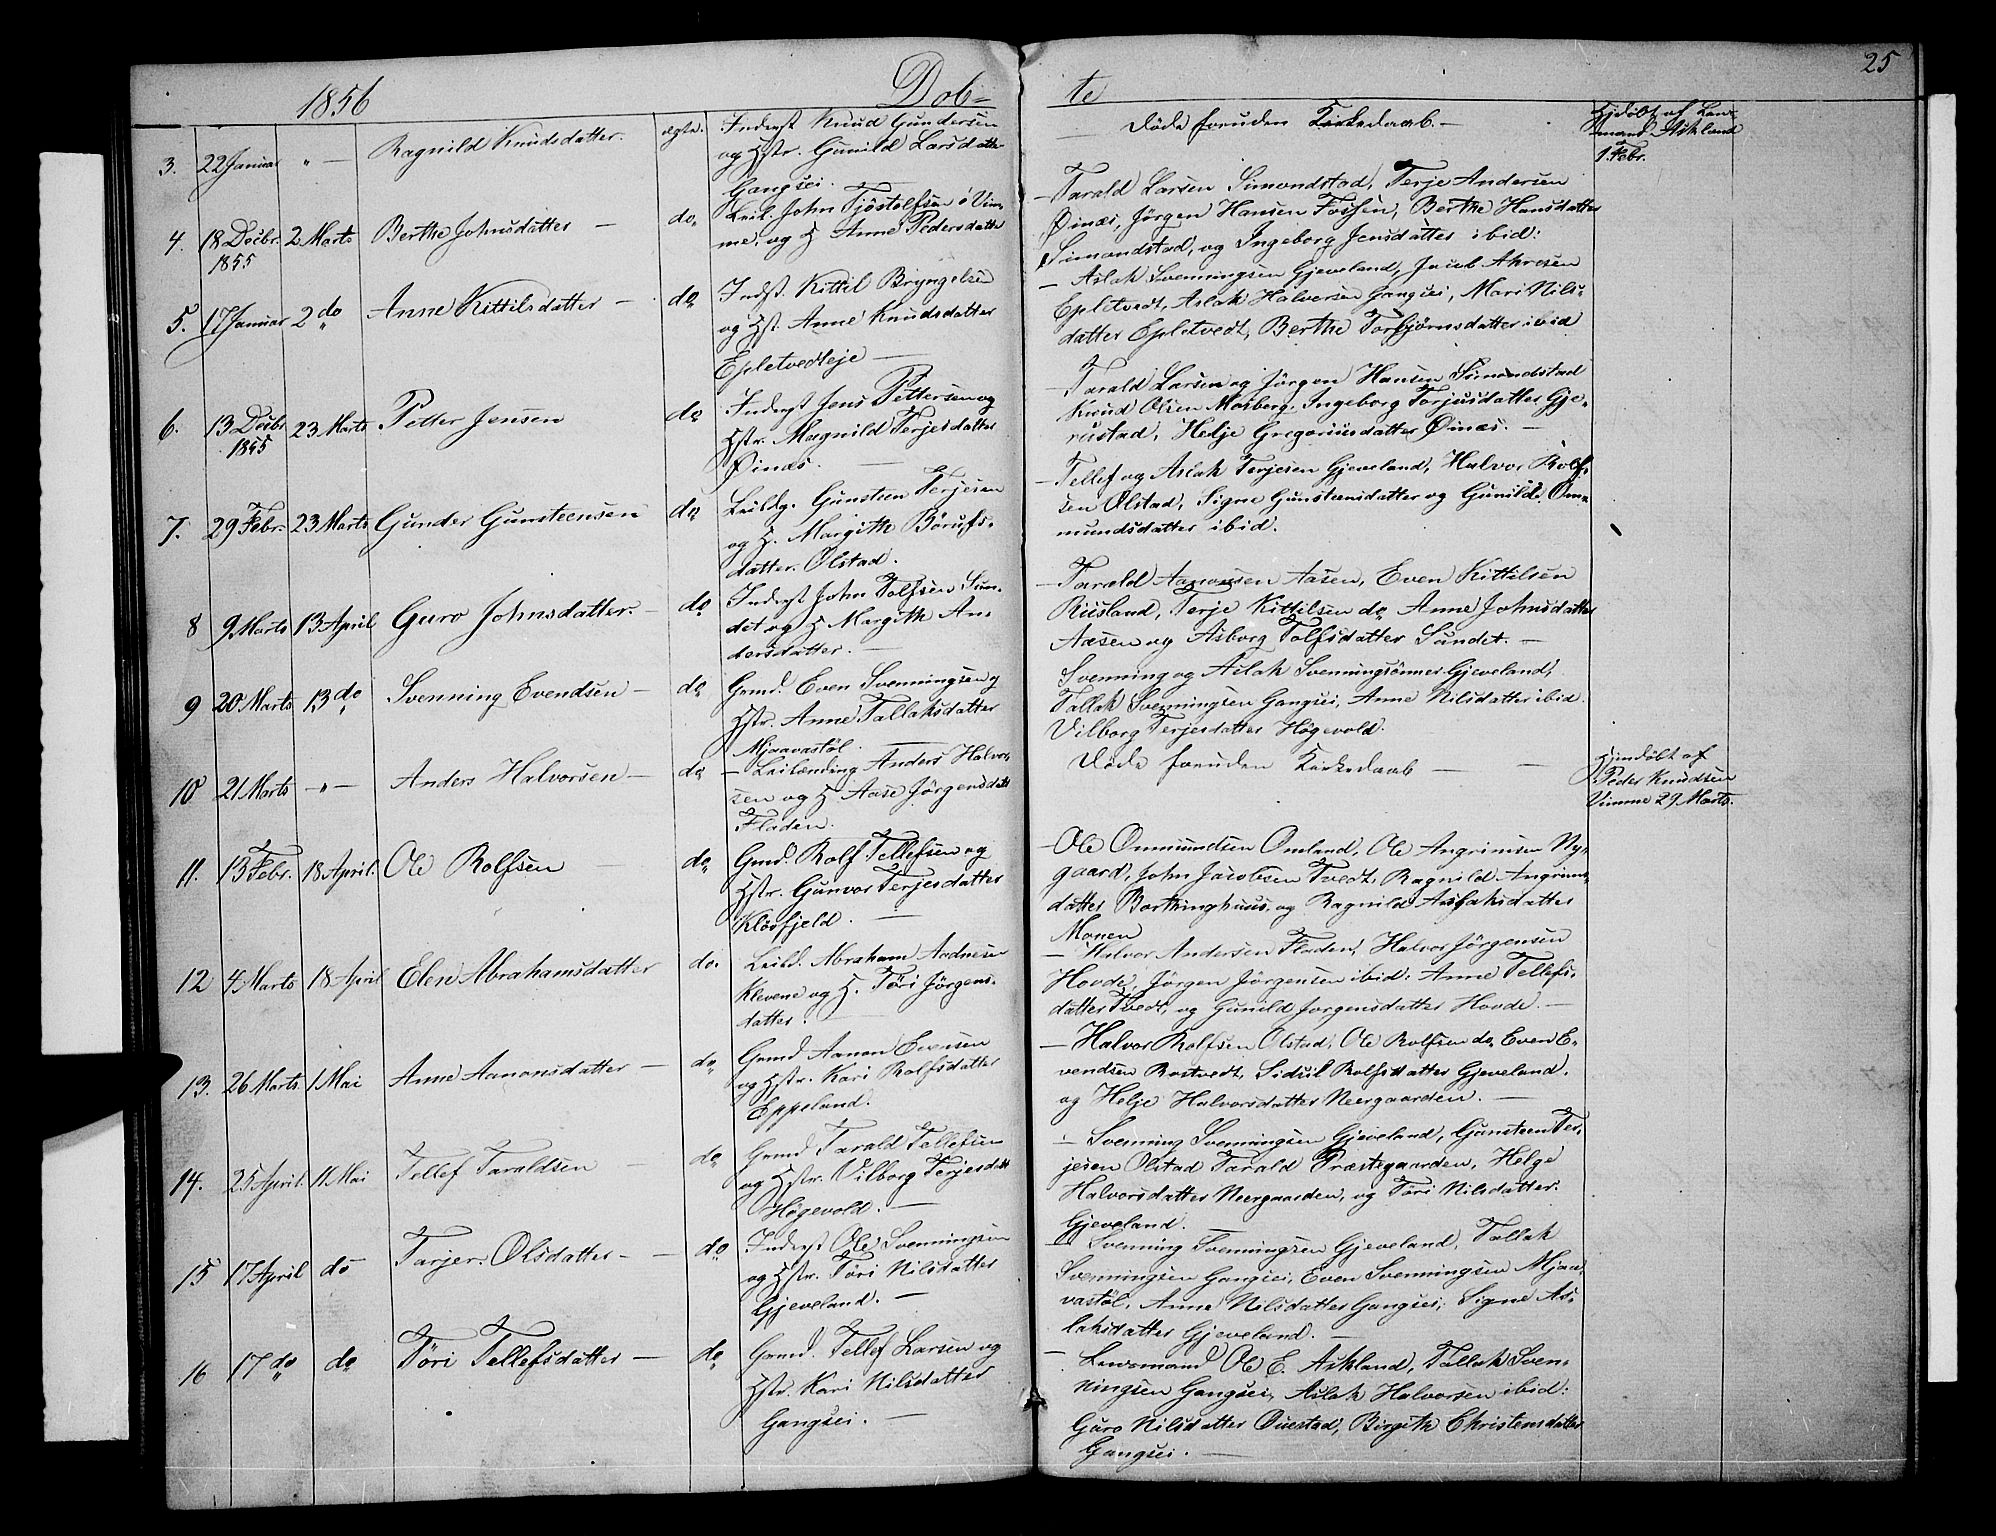 1856 Döb-
te 25
3. 22 Januar " — Ragnild Knudsdatter. ægte. Inderst Knud Gundersen
og Hstr. Gunild Larsdatter
Gangsei.
— Döde foruden Kirkedaab. —
Hjdöbt af Lens-
mand Askland
1 Febr.
4. 18 Decbr. 2 Marts Berthe Johnsdatter — do
1855
Leil. John Tjöstolfsen ö Vim-
me, og H. Anne Pedersdatter
— Tarald Larsen Simonstad, Terje Andersen
Öinæs, Jörgen Hansen Fossen, Berthe Hansdatter
Simonstad, og Ingeborg Jensdatter ibid:
5. 17 Januar 2 do Anne Kittilsdatter — do
Indst. Kittil Bryngelsen
og Hst. Anne Knudsdatter
Epletvedteje —
— Aslak Svenningsen Gjeveland, Jacob
Epletvedt, Aslak Halvorsen Gangsei, Mari Nils-
datter Epletvedt, Berthe Torbjörnsdatter ibid
6. 13 Decbr 23 Marts Petter Jensen do
1855
Inderst Jens Pettersen og
Hstr. Magnild Terjesdatter
Öinæs. —
— Tarald Larsen og Jörgen Hansen Simonstad
Knud Olsen Mosberg, Ingeborg Torjusdatter Gje-
rustad, Helje Gregoriusdatter Öinæs. —
7. 29 Febr. 23 Marts Gunder Gunsteensen do
Leildg. Gunsteen Terjesen
og H. Margith Börufs-
datter. Olstad.
— Tellef og Aslak Terjesen Gjeveland, Halvor Rolf-
sen Olstad, Signe Gunsteensdatter og Gunild Om-
mundsdatter ibid.
8 9 Marts 13 April Guro Johnsdatter. — do
Inderst John Tolfsen Sun-
det og H Margith An-
dersdatter. —
— Tarald Aanonsen Aasen, Even Kittilsen
Risland, Terje Kittilsen do Anne Johnsdatter
Aasen og Asborg Tolfsdatter Sundet. —
9 20 Marts 13 do Svenning Evendsen — do
Grmd. Even Svenningsen og
Hstr. Anne Tallaksdatter
Mjaavastöl. —
Svenning og Aslak Svenningsönner Gjeveland,
Tallak Svenningsen Gangsei, Anne Nilsdatter ibid.
Vilborg Terjesdatter Högevold.
10 21 Marts — " — Anders Halvorsen — do
— Leilending Anders Halvor-
sen og H. Aase Jörgensdatt
Fladen.
Döde foruden Kirkedaab — —
Hjemdöbt af
Peder Knudsen
Vimme 29 Marts.
11. 13 Febr. 18 April. Ole Rolfsen — do
Gmd. Rolf Tellefsen og
Hstr. Gunvor Terjesdatter
Klösfjeld. —
— Ole Ommundsen Omland, Ole Angrimsen Ny-
gaard, John Jacobsen Tvedt, Ragnild Angrims-
datter Borkinghuus, og Ragnild Aslaksdatter
Monen
12 4 Marts 18 April Elen Abrahamsdatter do
Leild. Abraham Aadnesen
Klevene og H. Töri Jörgens-
datter. —
— Halvor Andersen Fladen, Halvor Jörgensen
Hovde, Jörgen Jörgensen ibid: Anne Tellefs-
datter Tvedt, og Gunild Jorgensdatter Hovde. —
13. 26 Marts 1 Mai Anne Aanonsdatter — do
Grmd Aanon Evensen
og Hstr. Kari Rolfsdatter
Eppeland.
— Halvor Rolfsen Olstad, Ole Rolfsen do, Even E-
vendsen Rostvedt, Sidsil Rolfsdatter Gjeveland,
og Helje Halvorsdatter Neergaarden. —
14. 25 April. 11 Mai Tellef Taraldsen — do
Grmd Tarald Tellefsen
og Hstr. Vilborg Terjesdatt
Högevold. —
— Svenning Svenningsen Gjeveland, Gunsteen Ter-
jesen Olstad Tarald Præstegaarden, Helge
Halvorsdatter Neergaarden, og Töri Nilsdatter.
Gjeveland.
15 17 April do Tarjer. Olsdatter — do
Inderst Ole Svenningsen
og Hstr. Töri Nilsdatter
Gjeveland. —
— Svenning Svenningsen Gjeveland, Tallak
Svenningsen Gangsei, Even Svenningsen Mjaa-
vastöl, Anne Nilsdatter Gangsei, Signe As-
laksdatter Gjeveland. —
16 17 do do Töri Tellefsdatter — do
Grmd. Tellef Larsen og
Hstr. Kari Nilsdatter
Gangsei. —
— Lensmand Ole E. Askland, Tallak Sven-
ningsen Gangsei, Aslak Halvorsen ibid:
Guro Nilsdatter Questad, Birgith Christensdatter
Gangsei. —